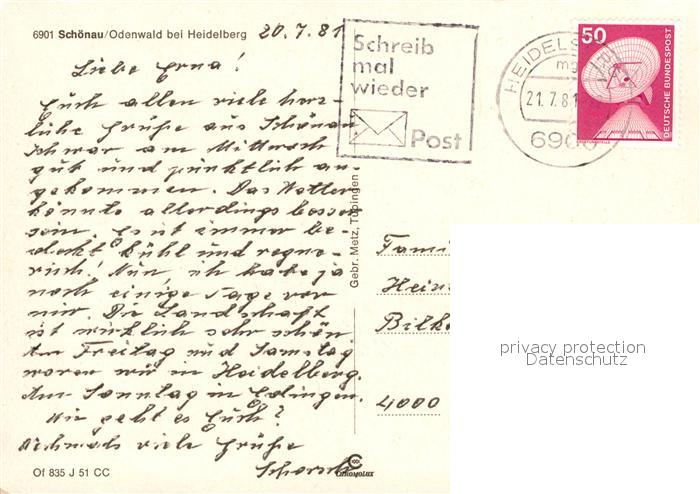 6901 Schönau/Odenwald bei Heidelberg
20.7.81
Liebe Erna!
Euch allen viele herz-
liche Grüße aus Schönau
Ich war am Mittwoch
gut und pünktlich an-
gekommen. Das Wetter
könnte allerdings besser
sein. Es ist immer be-
deckt kühl und regne-
risch! Nun, ich habe ja
noch einige Tage vor
mir. Die Landschaft
ist wirklich sehr schön.
Am Freitag und Samstag
waren wir in Heidelberg.
Am Sonntag in Edingen.
Wie geht es Euch?
Nochmals viele Grüße
Schorsch
Of 835 J 51 CC
CHROMOLUX
Gebr. Metz, Tübingen
Schreib
mal
wieder
Post
HEIDELB
21.7.81
6900
50
DEUTSCHE BUNDESPOST
Fami
Hein
Bilk
4000
privacy protection
Datenschutz